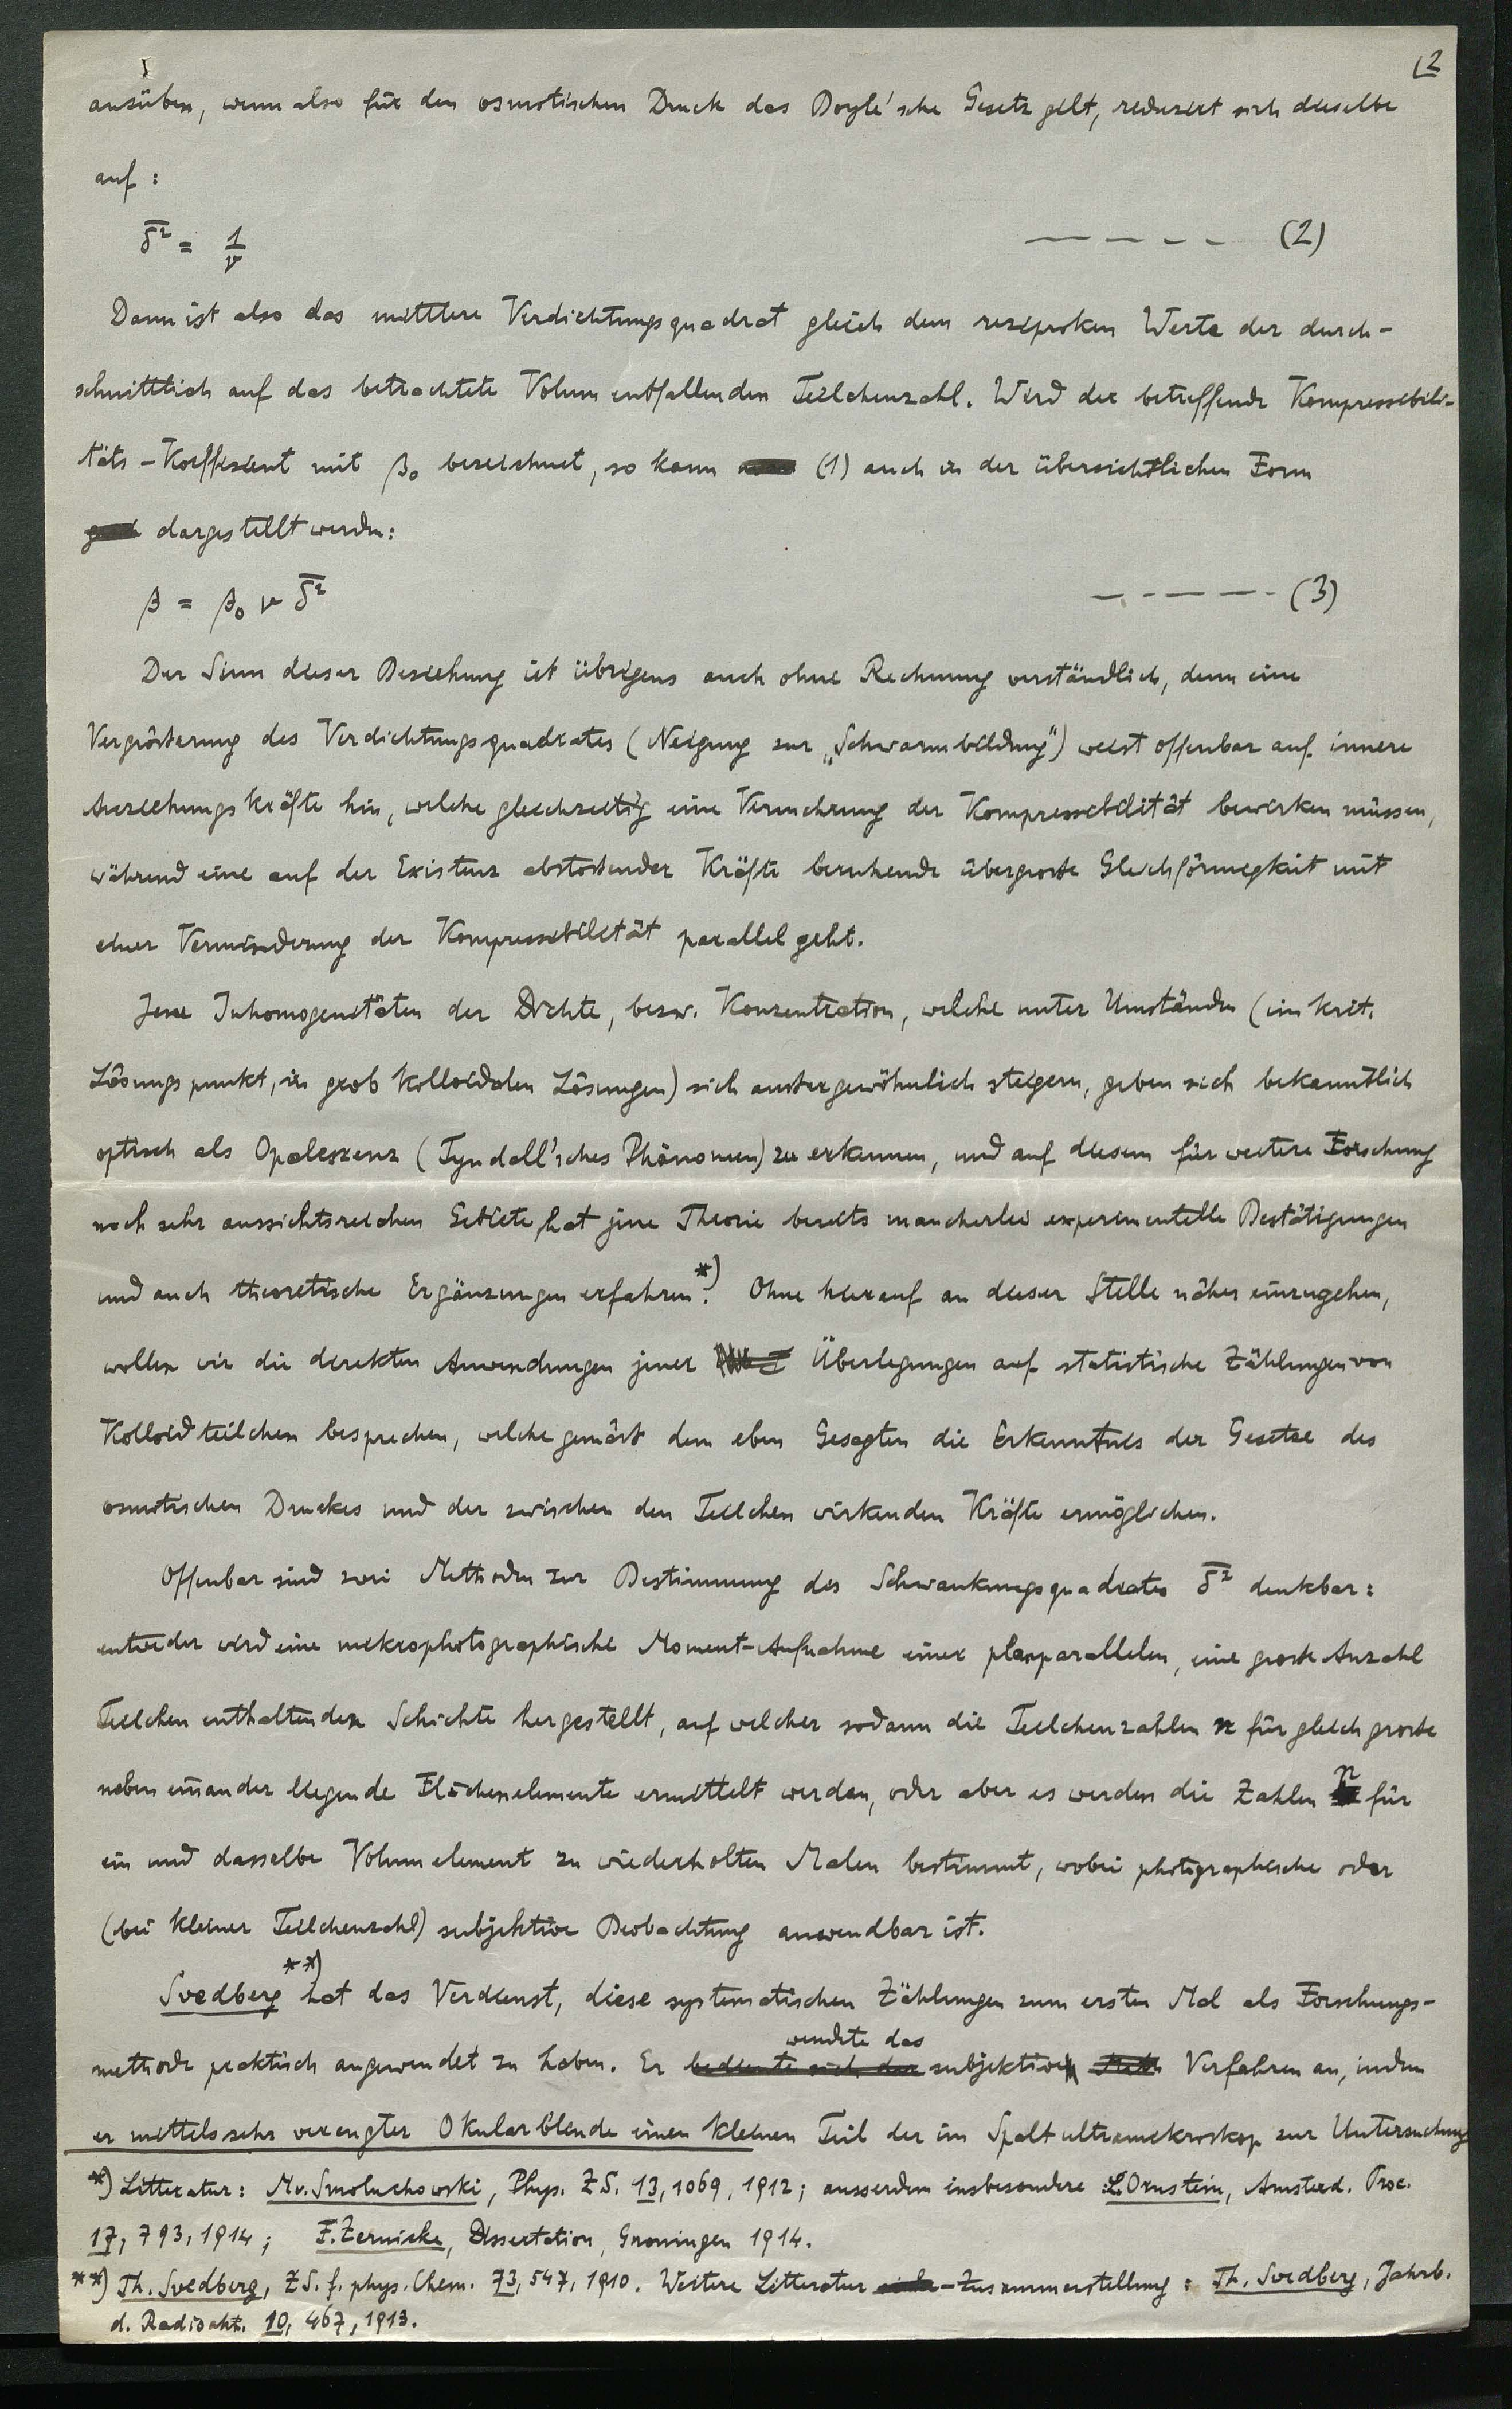 (2
ausüben, wenn also für den osmotischen Druck das Boyle'sche Gesetz gilt, reduziert sich dieselbe
auf :
δ̅² = 1/ν — — – – – (2)
Dann ist also das mittlere Verdichtungsquadrat gleich dem reziproken Werte der durch-
schnittlich auf das betrachtete Volum entfallenden Teilchenzahl. Wird der betreffende Kompressibili-
täts-Koeffizient mit β₀ bezeichnet, so kann (1) auch in der übersichtlichen Form
dargestellt werden:
β = β₀ ν δ̅² — – — — – (3)
Der Sinn dieser Beziehung ist übrigens auch ohne Rechnung verständlich, denn eine
Vergrösserung des Verdichtungsquadrates (Neigung zur „Schwarmbildung") weist offenbar auf innere
Anziehungskräfte hin, welche gleichzeitig eine Vermehrung der Kompressibilität bewirken müssen,
während eine auf der Existenz abstossender Kräfte beruhende übergrosse Gleichförmigkeit mit
einer Verminderung der Kompressibilität parallel geht.
Jene Inhomogenitäten der Dichte, bezw. Konzentration, welche unter Umständen (im krit.
Lösungspunkt, in grob kolloidalen Lösungen) sich aussergewöhnlich steigern, geben sich bekanntlich
optisch als Opaleszenz (Tyndall'sches Phänomen) zu erkennen, und auf diesem für weitere Forschung
noch sehr aussichtsreichen Gebiete, hat jene Theorie bereits mancherlei experimentelle Bestätigungen
und auch theoretische Ergänzungen erfahren.*) Ohne hierauf an dieser Stelle näher einzugehen,
wollen wir die direkten Anwendungen jener Überlegungen auf statistische Zählungen von
Kolloidteilchen besprechen, welche gemäss dem eben Gesagten die Erkenntnis der Gesetze des
osmotischen Druckes und der zwischen den Teilchen wirkenden Kräfte ermöglichen.
Offenbar sind zwei Methoden zur Bestimmung des Schwankungsquadrates δ̅² denkbar:
entweder wird eine mikrophotographische Moment-Aufnahme einer planparallelen, eine grosse Anzahl
Teilchen enthaltenden Schichte hergestellt, auf welcher sodann die Teilchenzahlen n für gleich grosse
neben einander liegende Flächenelemente ermittelt werden, oder aber es werden die Zahlen n für
ein und dasselbe Volumelement zu wiederholten Malen bestimmt, wobei photographische oder
(bei kleiner Teilchenzahl) subjektive Beobachtung anwendbar ist.
Svedberg **) hat das Verdienst, diese systematischen Zählungen zum ersten Mal als Forschungs-
methode praktisch angewendet zu haben. Er bediente sich der wendte das subjektive Verfahren an, indem
er mittels sehr verengter Okularblende einen kleinen Teil der im Spaltultramikroskop zur Untersuchung
*) Litteratur: M. v. Smoluchowski, Phys. ZS. 13, 1069, 1912; ausserdem insbesondere L. Ornstein, Amsterd. Proc.
17, 793, 1914; F. Zernicke, Dissertation, Groningen 1914.
**) Th. Svedberg, ZS. f. phys. Chem. 73, 547, 1910. Weitere Litteratur-Zusammenstellung: Th. Svedberg, Jahrb.
d. Radioakt. 10, 467, 1913.